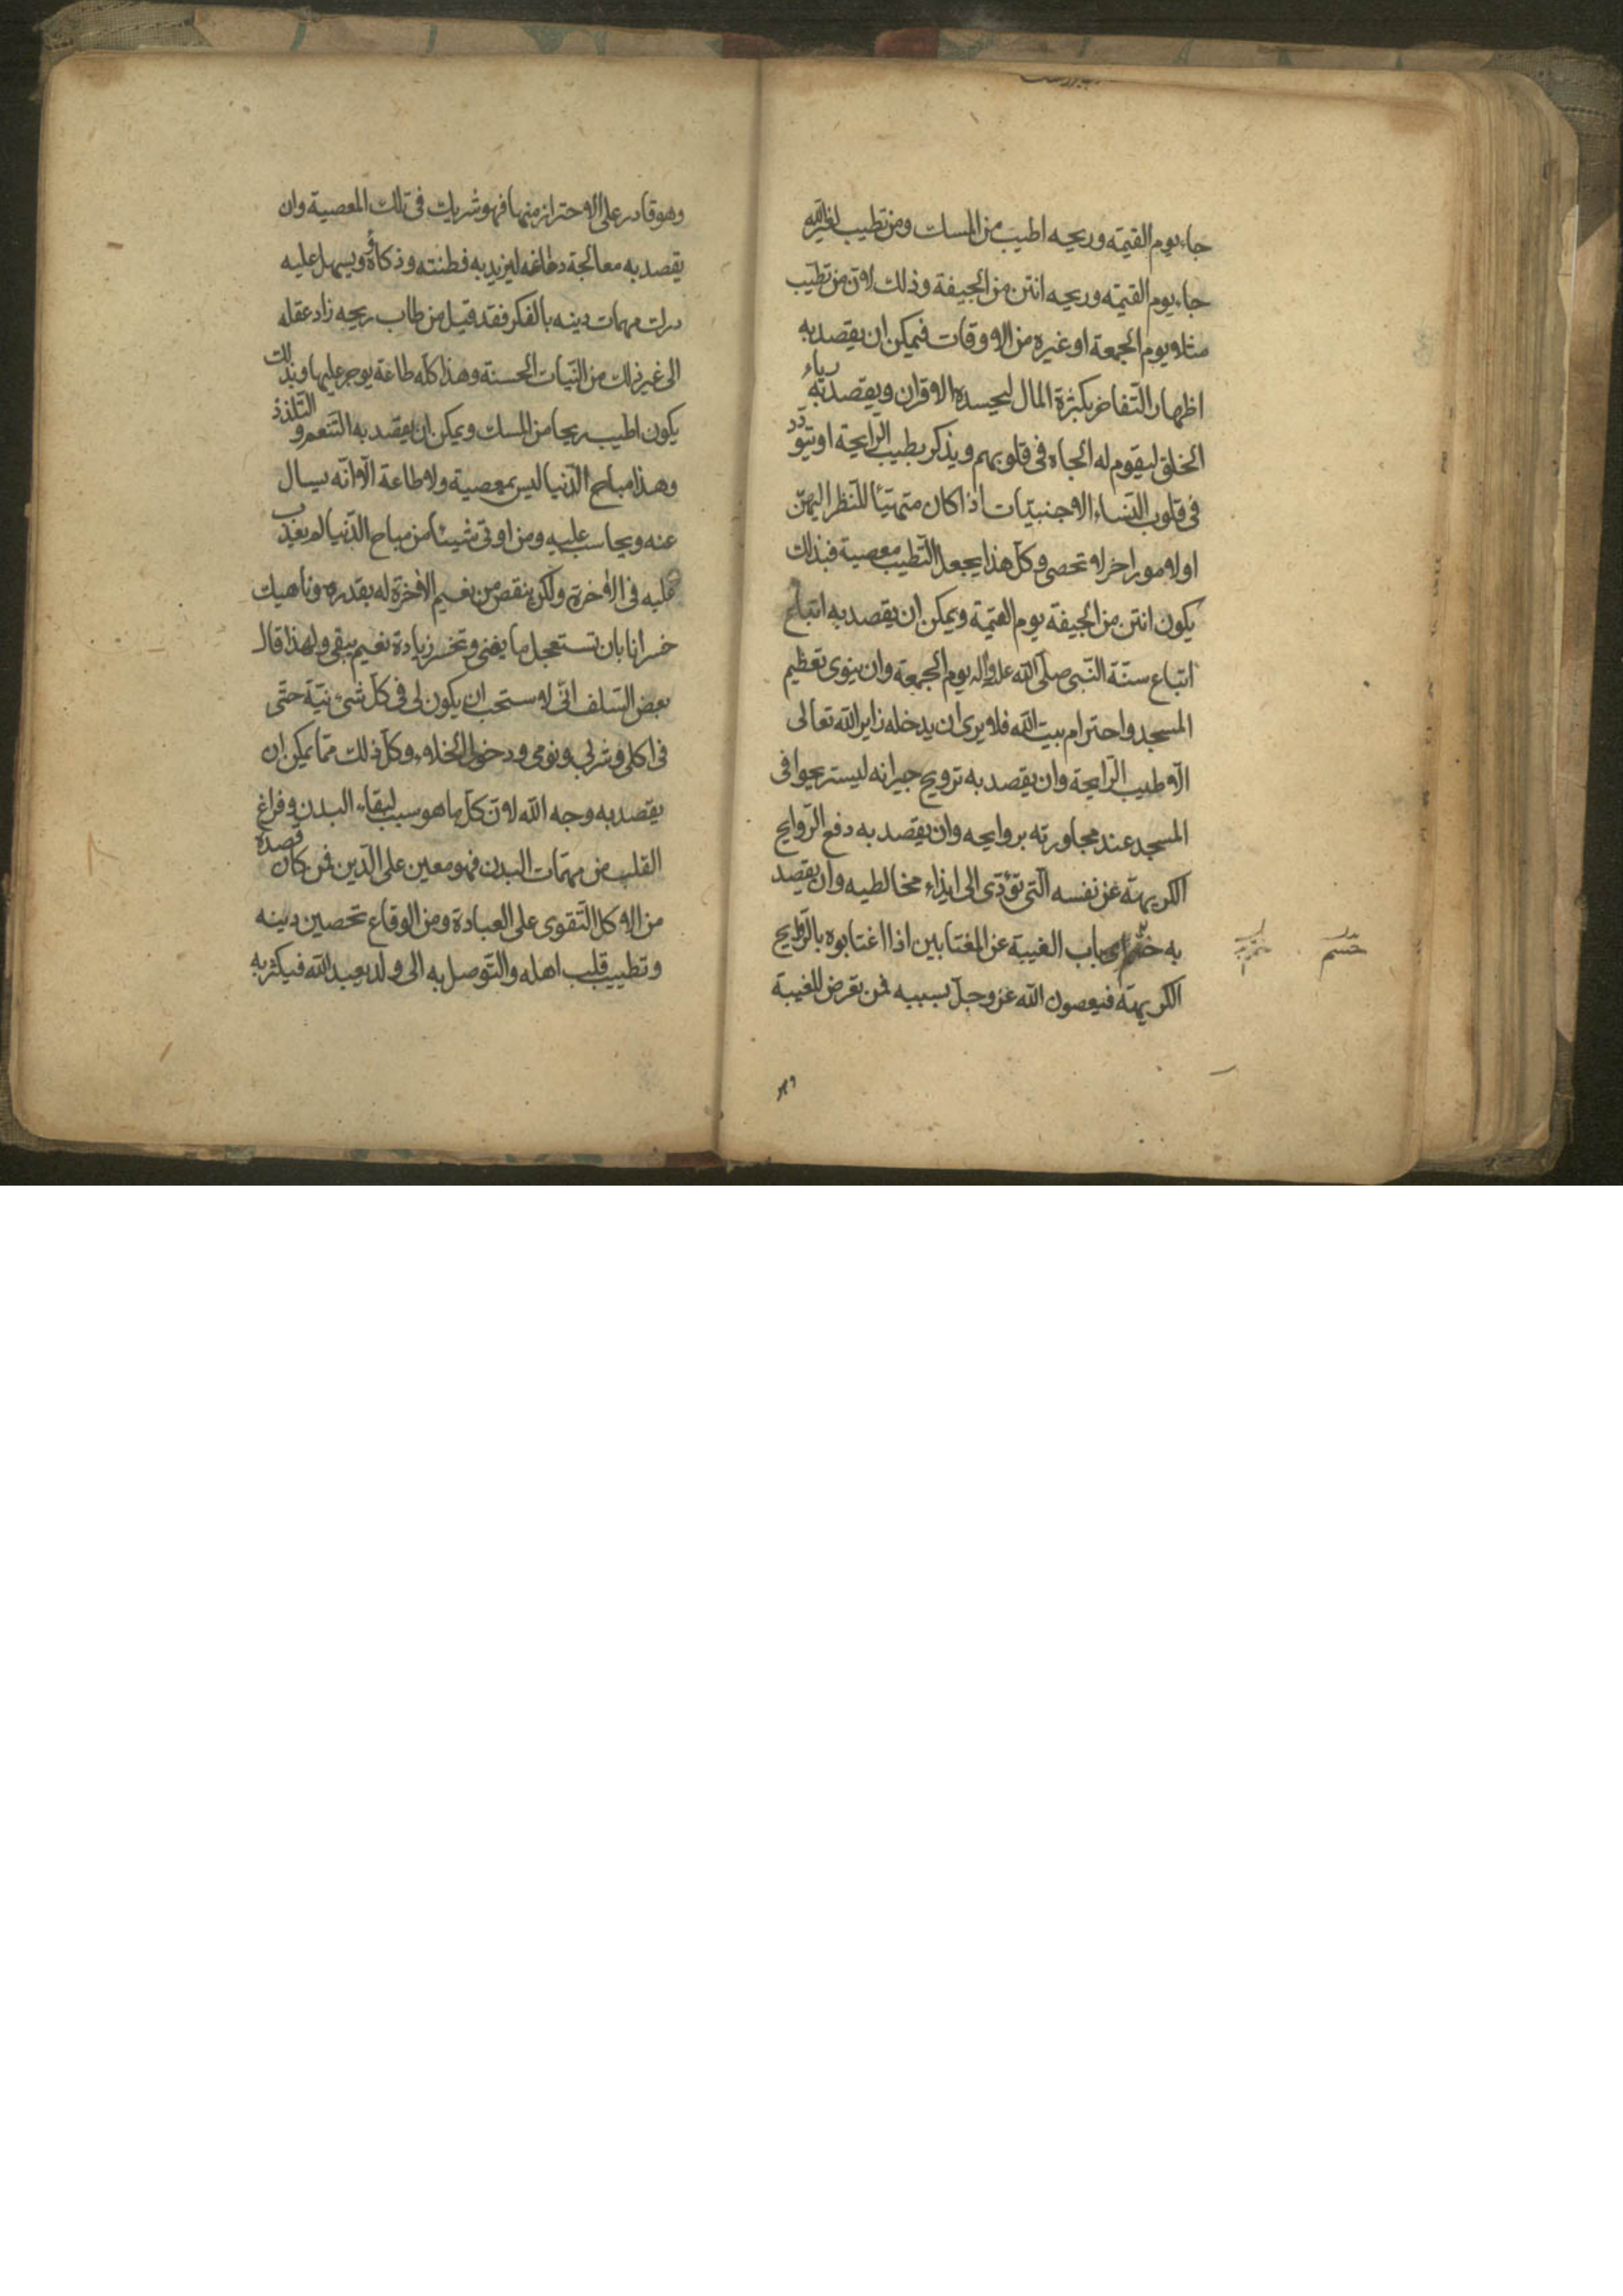 جاء يوم القيمة وريحه اطيب من المسك ومن تطيب لغير الله
جاء يوم القيمة وريحه انتن من الجيفة وذلك لان من تطيب
مثلا يوم الجمعة او غيره من الاوقات فيمكن ان يقصد به
اظهار التفاخر بكثرة المال ليحسده الاقران ويقصد به رياء
الخلق ليقوم له الجاه في قلوبهم ويذكر بطيب الرايحة او يتودد
في قلوب النساء الاجنبيات اذا كان متهيئا للنظر اليهن
او لامور اخر لا تحصى وكل هذا يجعل التطيب معصية فبذلك
يكون انتن من الجيفة يوم القيمة ويمكن ان يقصد به اتباع
اتباع سنة النبي صلى الله عليه واله يوم الجمعة وان ينوى تعظيم
المسجد واحترام بيت الله فلا يرى ان يدخله زاير الله تعالى
الا طيب الرايحة وان يقصد به ترويح جيرانه ليستريحوا في
المسجد عند مجاورته بروايحه وان يقصد به دفع الروايح
الكريهة عن نفسه التى تؤدى الى ايذاء مخالطيه وان يقصد
به باب الغيبة عن المغتابين اذا اغتابوه بالروايح
الكريهة فيعصون الله عز وجل بسببه فمن تعرض للغيبة
حسم
وهو
وهو قادر على الاحتراز منها فهو شريك في تلك المعصية وان
يقصد به معالجة دماغه ليزيد به فطنته وذكاؤه ويسهل عليه
درك مهمات دينه بالفكر فقد قيل من طاب ريحه زاد عقله
الى غير ذلك من النيات الحسنة وهذا كله طاعة يوجر عليها وبذلك
يكون اطيب ريحا من المسك ويمكن ان يقصد به التنعم والتلذذ
وهذا مباح الدنيا ليس بمعصية ولا طاعة الا انه يسال
عنه ويحاسب عليه ومن اوتى شيئا من مباح الدنيا لم يعذب
عليه في الاخرة ولكن ينقص من نعيم الاخرة له بقدره وناهيك
خسرانا بان تستعجل ما يفنى وتخسر زيادة نعيم يبقى ولهذا قال
بعض السلف انى لاستحب ان يكون لى في كل شئ نية حتى
في اكلى وشربى ونومى ودخولى الخلاء وكل ذلك مما يمكن ان
يقصد به وجه الله لان كل ما هو سبب لبقاء البدن وفراغ
القلب من مهمات البدن فهو معين على الدين فمن كان قصده
من الاكل التقوى على العبادة ومن الوقاع تحصين دينه
وتطييب قلب اهله والتوصل به الى ولد يعبد الله فيكثر به